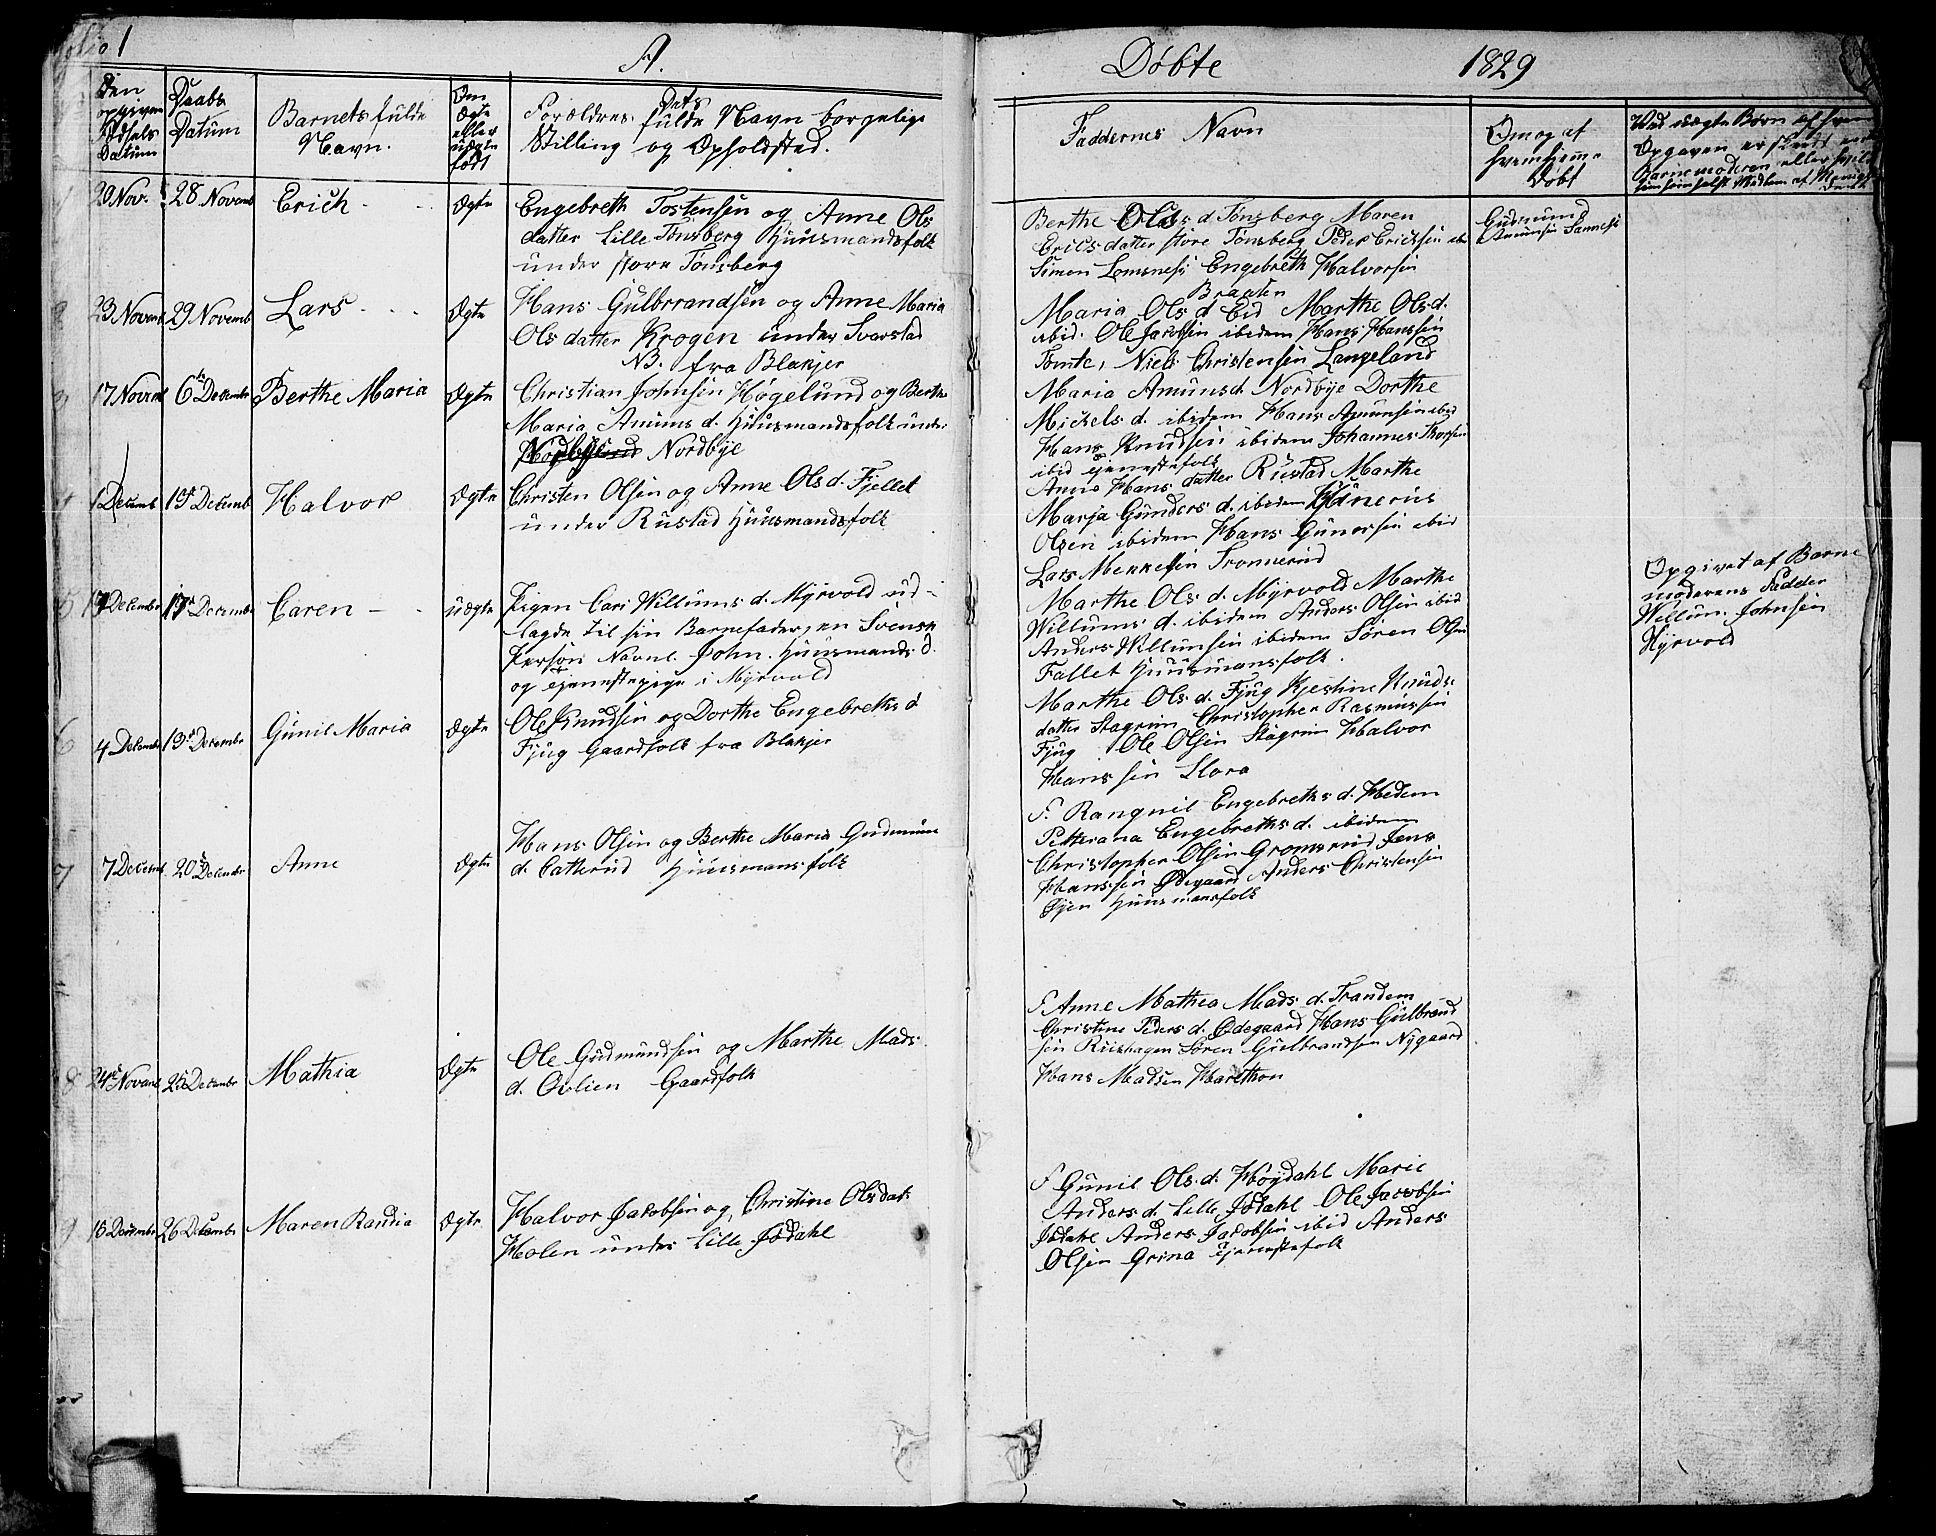 Folio 1
A.
Døbte 1829
Den
opgivne
Fødsels
Datum
Daabs
Datum
Barnets fulde
Navn.
Om
ægte
eller
uægte
født
Forældrenes fulde Navn borgelige
Stilling og Opholdsted.
Faddernes Navn
Om og af
hvem hjemme
Døbt
Ved uægte Børn af hvem
Opgaven er skeet
Barnemoderen eller
1
20 Nov. 28 Novemb Erich Ægte
Engebreth Tostensen og Anne Ols
datter Lille Tønsberg Huusmandsfolk
under store Tønsberg
Berthe Ols d Tønsberg Maren
Erics datter store Tønsberg Peder Ericksen ibid
Simen Lomsness Engebreth Halvorsen
Braaten
Gudmund
Amunsen Sanness
2
23 Novemb 29 Novemb Lars Ægte
Hans Gulbrrandsen og Anne Maria
Ols datter Krogen under Svarstad
NB. fra Blakjer
Maria Ols d Eid Marthe Ols d.
ibid. Ole Jacobsen ibidem Hans Hanssen
Tomte, Niels Christensen Langeland
3
17 Novemb 6te Decembr Berthe Maria Ægte
Christian Johnsen Høgelund og Berthe
Maria Amuns d. Huusmandsfolk under
Nordbye
Maria Amuns d. Nordbye Dorthe
Mickels d. ibidem Hans Amunsen ibid
Hans Knudsen ibidem Johannes Thorsen
ibid tjenestefolk
4
1 Decemb 13 Decemb Halvor Ægte
Christen Olsen og Anne Ols d. Fjellet
under Rustad Huusmandsfolk
Anne Hans datter Rustad Marthe
Marja Gunders d. ibidem
Olsen ibidem Hans Gunersen ibid
Lars Mekkelsen Tronnerud
5
Decembr 13 Decembr Caren uægte
Pigen Cari Willums d. Myrvold ud-
lagde til sin Barnefader, en Svensk
Person Navnl. John. Huusmands d.
og tjenestepige i Myrvold
Marthe Ols d. Myrvold Marthe
Willums d. ibidem Anders Olsen ibid
Anders Willumsen ibidem Søren Olsen
Fallet Huusmansfolk.
Opgivet af Barne
moderens Fadder
Willum Johnsen
Myrvold
6
4 Decembr 13 Decembr Gunil Maria Ægte
Ole Knudsen og Dorthe Engebreths d
Fjug Gaardfolk fra Blakjer
Marthe Ols d. Fjug Kjestine Knuds
datter Stagrim Christopher Rasmussen
Fjug Ole Olsen Stagrim Halvor
Hanssen Slora
7
7 Decemb 20 Decembr Anne Ægte
Hans Olsen og Berthe Maria Gudmuns
d. Catterud Huusmansfolk
F. Rangnil Engebreths d. Hedem
Petterana Engebreths d. ibidem
Christopher Olsen Gromsrud Jens
Hanssen Ødegaard Anders Christensen
Huusmansfolk
8
24 Novemb 25 Decembr Mathia Ægte
Ole Gudmundsen og Marthe Mads
d. Ovlien Gaardfolk
F Anne Mathea Mads d. Trandem
Christine Peders d. Ødegaard Hans Gulbrand
sen Riishagen Søren Gulbrandsen Nygaard
Hans Madsen Harethon
9
15 Decembr 26 Decembr Maren Randia Ægte
Halvor Jacobsen og, Christine Ols dat.
Holen under Lille Jødahl
F Gunil Ols d. Høgdahl Marie
Anders d. Lille Jødahl Ole Jacobsen
Jødahl Anders Jacobsen ibid Anders
Olsen Grina tjenestefolk